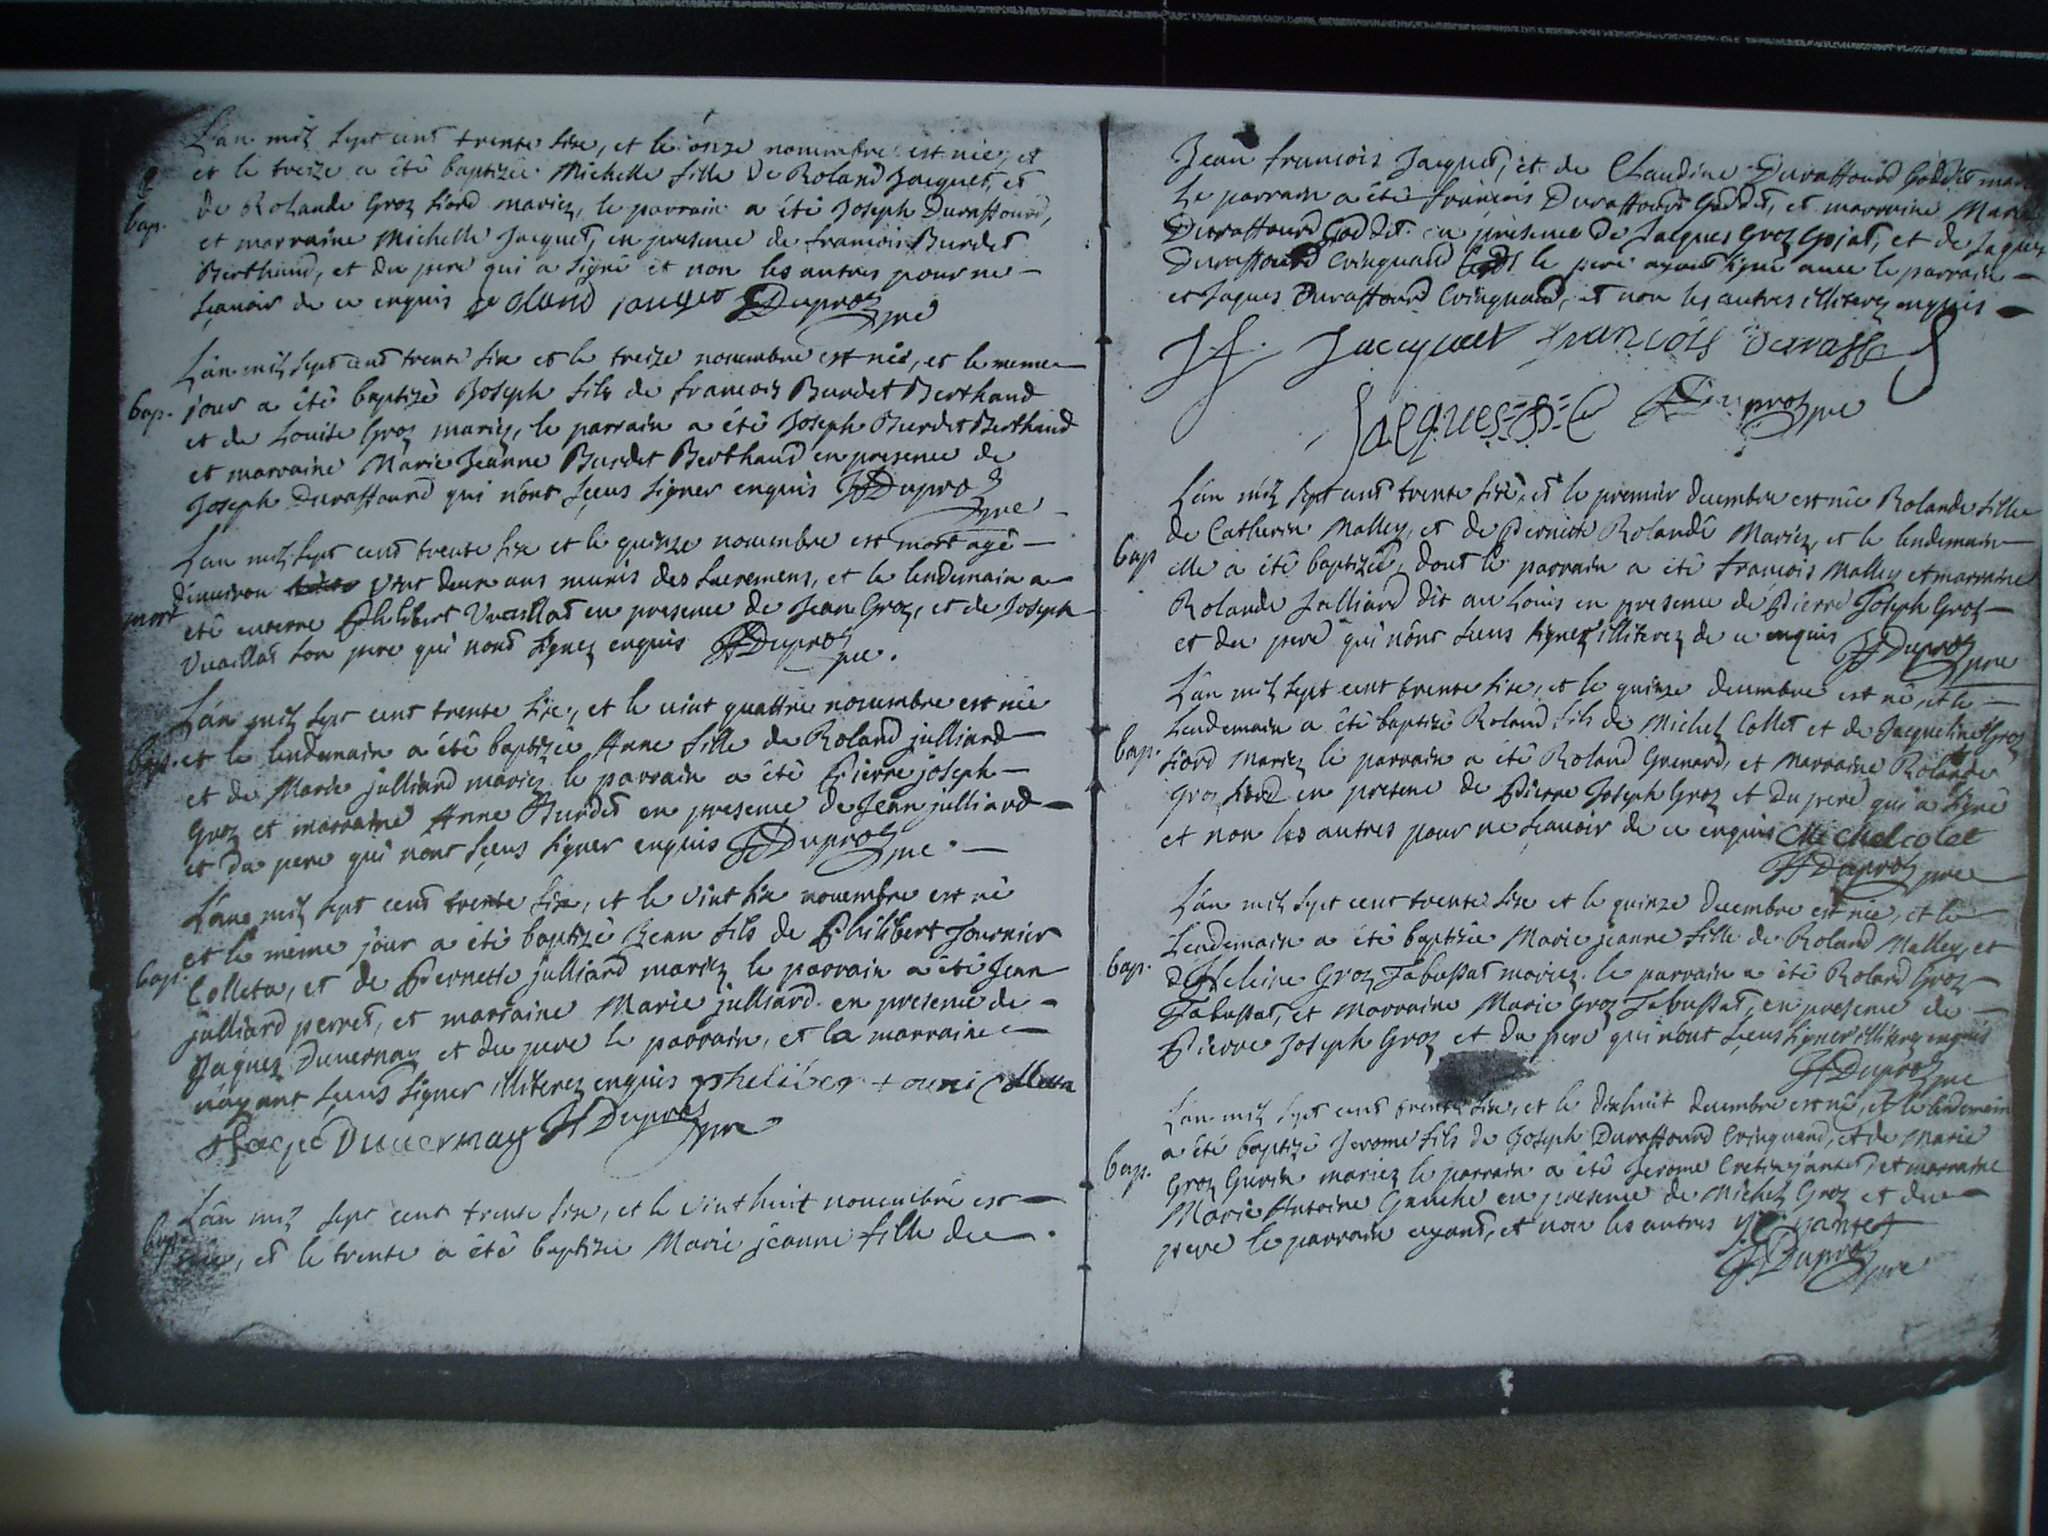 L'an mil sept cent trente sixe, et le onze nouembre est nie, et
et le treize a été baptizée Michelle fille de Roland Jacquet, et
Bap.
de Rolande Groz fiord mariez, le parrain a été Joseph Duraffourd,
et marraine Michelle Jacquet, en presence de francois Burdet
Berthaud, et du pere qui a signé et non les autres pour ne
sçauoir de ce enquis Roland jaquet JfDuproz pre
L'an mil sept cent trente sixe et le treize nouembre est née, et le meme
Bap.
jour a été baptizé Joseph fils de francois Burdet Berthaud
et de Louise Groz mariez, le parrain a été Joseph Burdet Berthaud
et marraine Marie Jeanne Burdet Berthaud en presence de
Joseph Duraffourd qui n'ont sçeus signer enquis JfDuproz
pre
L'an mil sept cent trente sixe et le quinze nouembre est mort agé
d'enuiron vint deux ans munis des sacremens, et le lendemain a
mort
été enterré Philibert Vuaillat en presence de Jean Groz, et de Joseph
Vuaillat son pere qui n'ont signez enquis JfDuproz
pre.
L'an mil sept cent trente sixe, et le vint quattre nouembre est née
Bap.
et le lendemain a été baptizée Anne fille de Roland julliard
et de Marie julliard mariez le parrain a été Pierre joseph
Groz et marraine Anne Burdet en presence de Jean julliard
et du pere qui n'ont sçeus signer enquis JfDuproz pre.
L'an mil sept cent trente sixe, et le vint sixe nouembre est né
et le même jour a été baptizé Jean fils de Philibert Fournier
Bap.
Colleta, et de Pernette julliard mariez le parrain a été Jean
julliard perret, et marraine Marie julliard en presence de
Jaques Duuernay et du pere le parrain, et la marraine
n'ayant sçeus signer illiterez enquis
Duuernay JfDuproz
pre
L'an mil sept cent trente sixe, et le vint huit nouembre est
Bap.
née, et le trente a été baptizée Marie jeanne fille de
Jean francois Jacquet, et de Claudine Duraffourd Goddet mariez
Le parrain a été françois Duraffourd Goddet, et marraine Marie
Duraffourd Goddet en presence de Jacques Groz Gojat, et de Jaques
Duraffourd Crinquand le pere ayant signé auec le parrain
et Jaques Duraffourd Crinquand, et non les autres illiterez enquis
Jf. Jacquet francois duraff
Jacques D C JfDuproz pre
L'an mil sept cent trente sixe, et le premier decembre est née Rolande fille
de Catherin Malley, et de Pernette Rolande Mariez, et le lendemain
Bap
elle a été baptizée, dont le parrain a été francois Malley et marraine
Rolande Julliard dit au Louis en presence de Pierre Joseph Groz
et du pere qui n'ont sceus signez illiterez de ce enquis JfDuproz
pre
L'an mil sept cent trente sixe, et le quinze decembre est né et le
lendemain a été baptizé Roland fils de Michel Collet et de Jacqueline Groz
Bap.
fiord mariez le parrain a été Roland Grenard, et marraine Rolande
Groz fiord en presence de Pierre Joseph Groz et du pere qui a signé
et non les autres pour ne sçauoir de ce enquis Michel colet
JfDuproz pre
L'an mil sept cent trente sixe et le quinze decembre est née, et le
Lendemain a été baptizée Marie jeanne fille de Roland Malley, et
Bap.
d'Heleine Groz Tabussat mariez. le parrain a été Roland Groz
Tabussat, et marraine Marie Groz Tabussat, en presence de
Pierre Joseph Groz et du pere qui n'ont sçeus signer illiterez enquis
JfDuproz
pre
L'an mil sept cent trente sixe, et le dixhuit decembre est né, et le lendemain
a été baptizé Jerome fils de Joseph Duraffourd Crinquand, et de Marie
Bap.
Groz Gurin mariez le parrain a été Jerome Cretin jantet, et marraine
Marie Antoine Gauche en presence de Michel Groz et du
pere le parrain ayant, et non les autres J C jantet
JfDuproz
pre